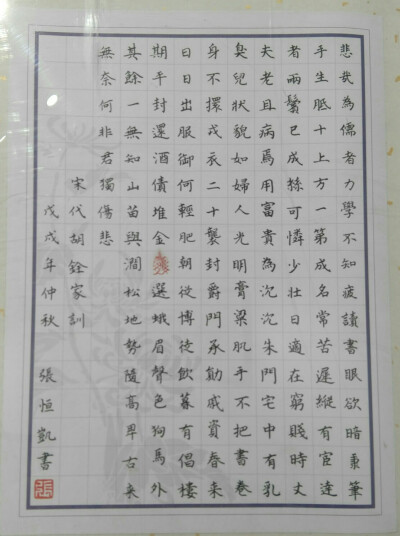 悲哉為儒者力學不知疲讀書眼欲暗秉筆
手生胝十上方一第成名常苦遲縱有宦達
者兩鬢已成絲可憐少壯日適在窮賤時丈
夫老且病焉用富貴為沉沉朱門宅中有乳
臭兒狀貌如婦人光明膏粱肌手不把書卷
身不擐戎衣二十襲封爵門承勛戚資春來
日日出服御何輕肥朝從博徒飲暮有倡樓
期平封還酒債堆金選蛾眉聲色狗馬外
其餘一無知山苗與澗松地勢隨高卑古來
無奈何非君獨傷悲
宋代胡銓家訓
戊戌年仲秋 張恒凱書
張